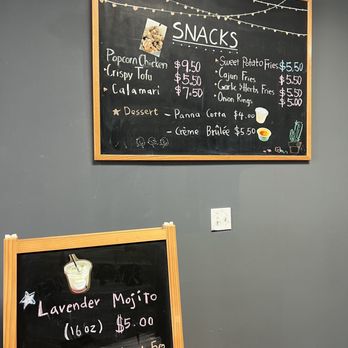 SNACKS
Popcorn Chicken $9.50
• Crispy Tofu $5.50
• Calamari $7.50
• Sweet Potato Fries $5.50
• Cajun Fries $5.50
• Garlic & Herbs Fries $5.50
• Onion Rings $5.00
Dessert - Panna Cotta $4.00
- Crème Brûlée $5.50
Lavender Mojito
(16oz) $5.00